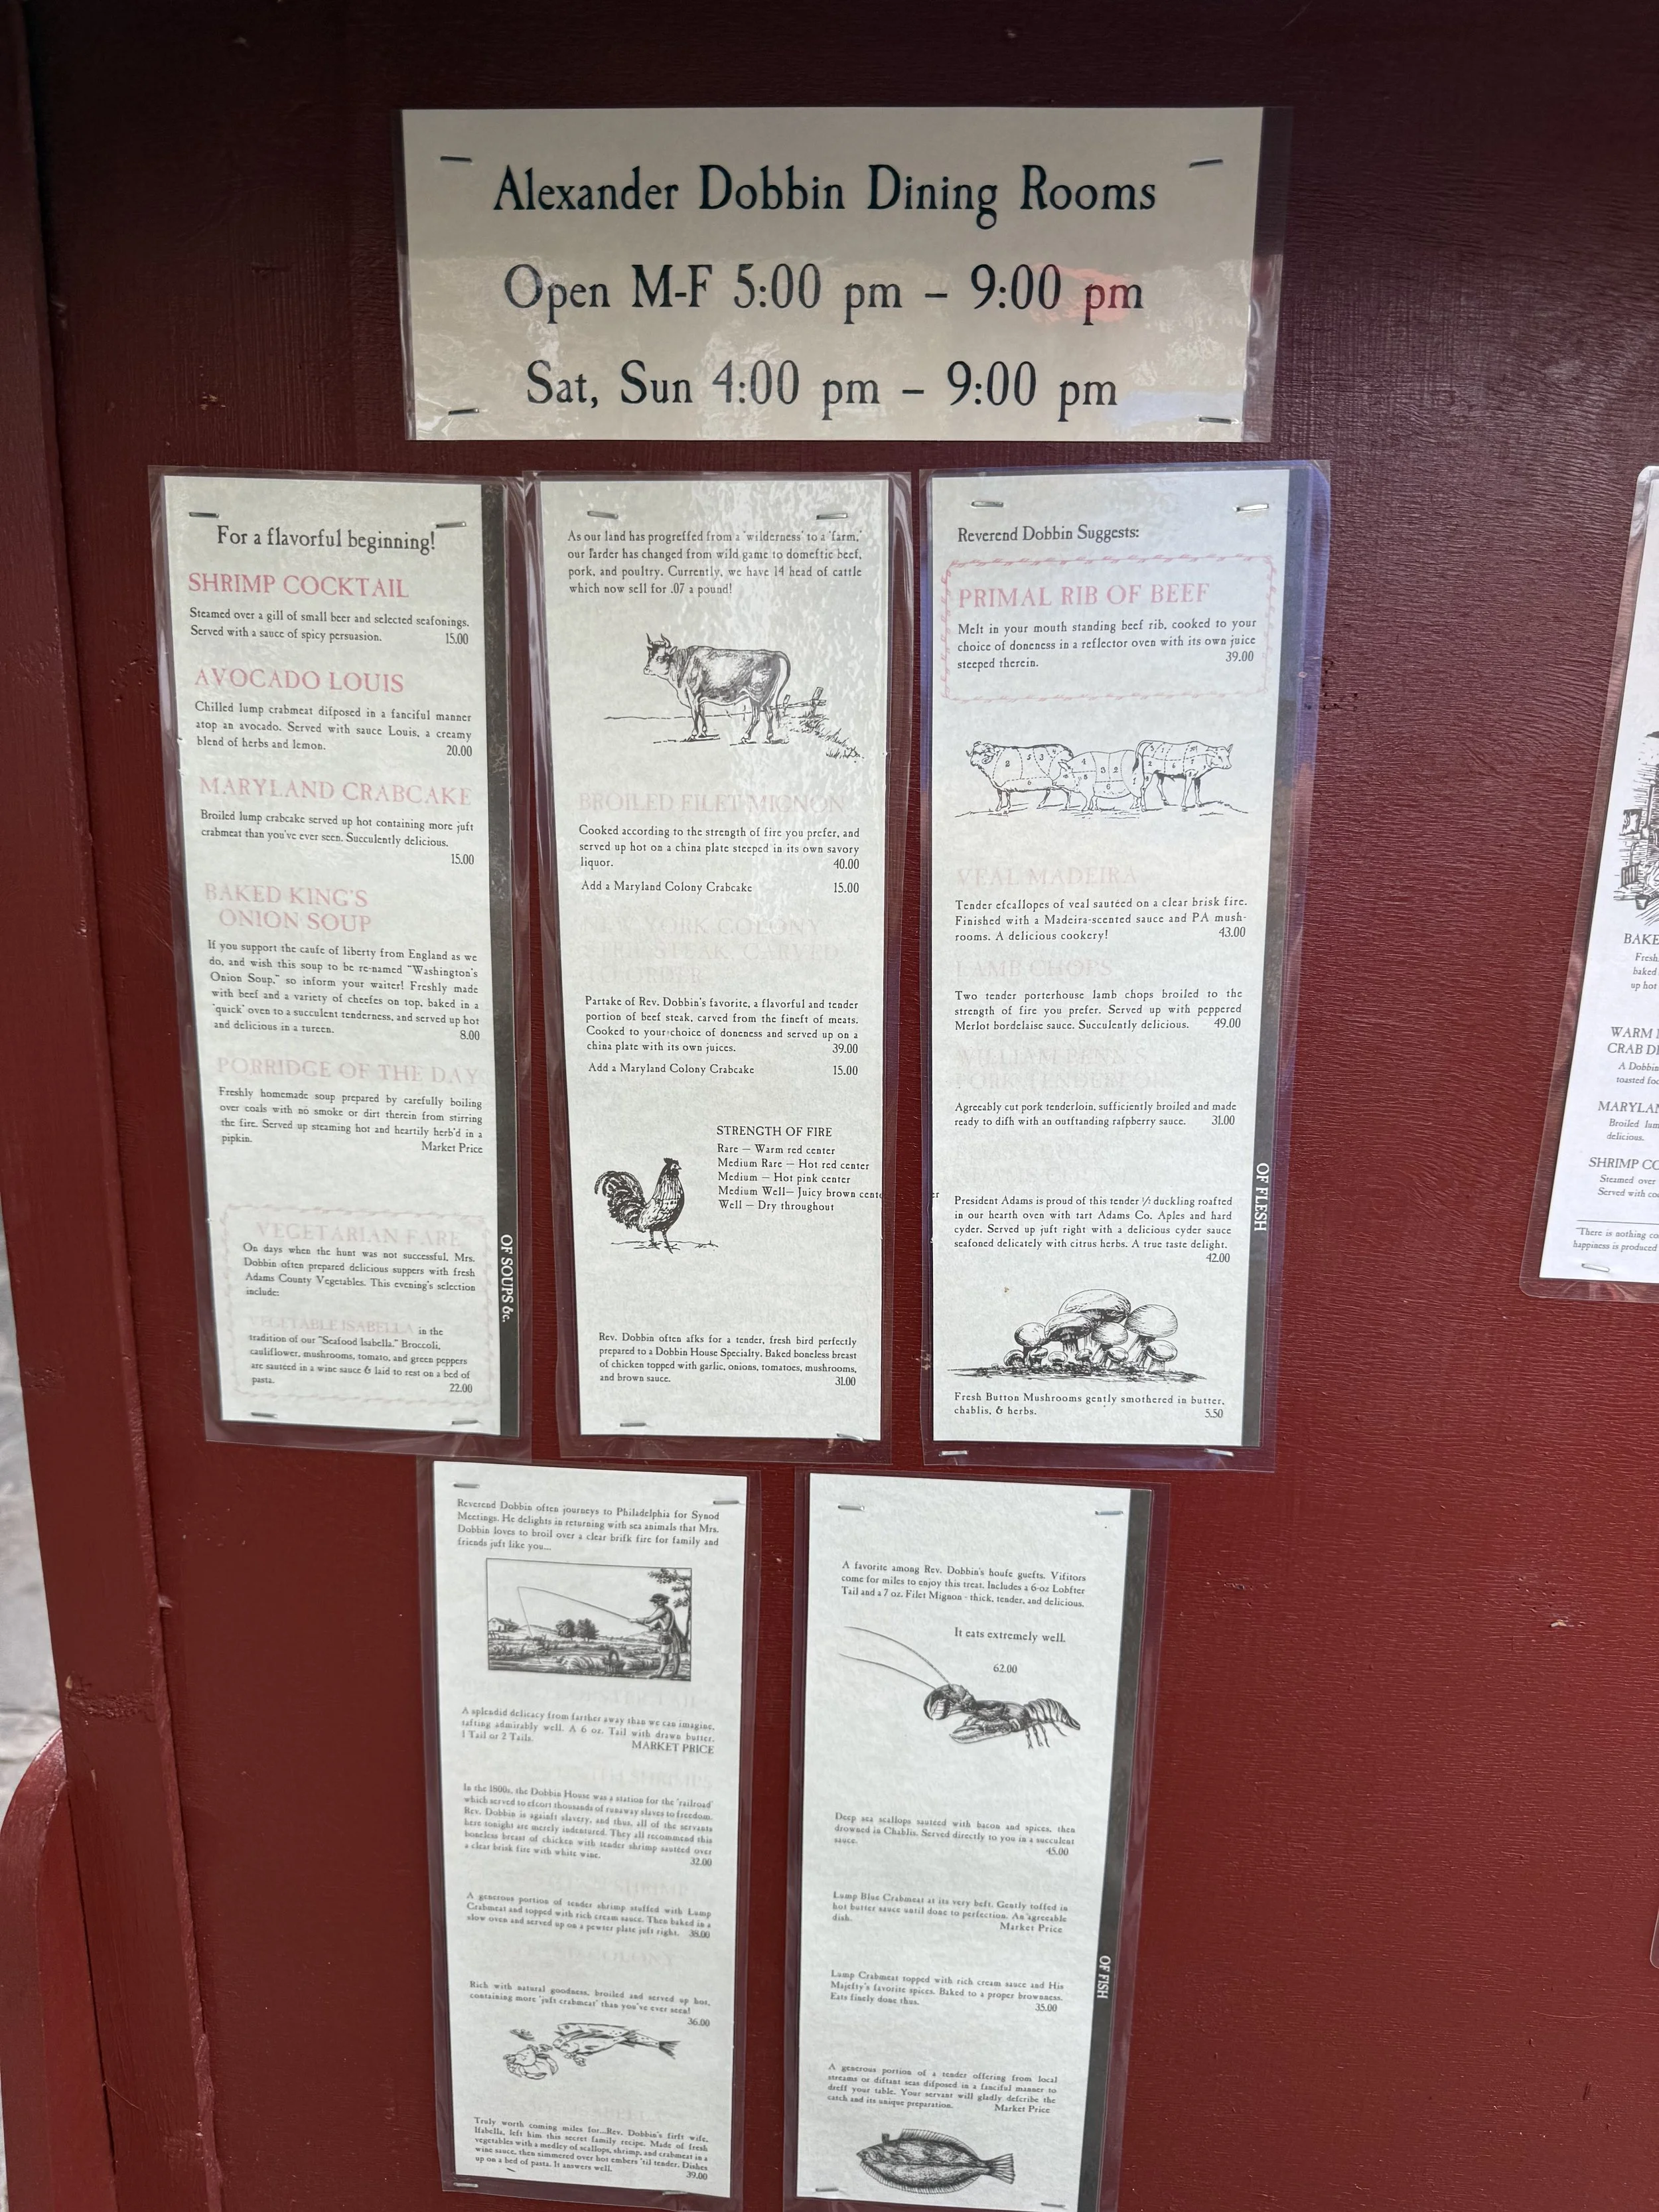 Alexander Dobbin Dining Rooms
Open M-F 5:00 pm – 9:00 pm
Sat, Sun 4:00 pm – 9:00 pm
For a flavorful beginning!
SHRIMP COCKTAIL
Steamed over a gill of small beer and selected seafonings.
Served with a sauce of spicy persuasion. 15.00
AVOCADO LOUIS
Chilled lump crabmeat difposed in a fanciful manner
atop an avocado. Served with sauce Louis, a creamy
blend of herbs and lemon. 20.00
MARYLAND CRABCAKE
Broiled lump crabcake served up hot containing more juft
crabmeat than you've ever seen. Succulently delicious.
15.00
BAKED KING'S
ONION SOUP
If you support the caufe of liberty from England as we
do, and wish this soup to be re-named "Washington's
Onion Soup," so inform your waiter! Freshly made
with beef and a variety of cheefes on top, baked in a
'quick' oven to a succulent tenderness, and served up hot
and delicious in a tureen. 8.00
PORRIDGE OF THE DAY
Freshly homemade soup prepared by carefully boiling
over coals with no smoke or dirt therein from stirring
the fire. Served up steaming hot and heartily herb'd in a
pipkin. Market Price
VEGETARIAN FARE
On days when the hunt was not successful, Mrs.
Dobbin often prepared delicious suppers with fresh
Adams County Vegetables. This evening's selection
include:
VEGETABLE ISABELLA in the
tradition of our "Seafood Isabella." Broccoli,
cauliflower, mushrooms, tomato, and green peppers
are sautéed in a wine sauce & laid to rest on a bed of
pasta. 22.00
OF SOUPS &c.
As our land has progreffed from a 'wilderness' to a 'farm,'
our larder has changed from wild game to domeftic beef,
pork, and poultry. Currently, we have 14 head of cattle
which now sell for .07 a pound!
BROILED FILET MIGNON
Cooked according to the strength of fire you prefer, and
served up hot on a china plate steeped in its own savory
liquor. 40.00
Add a Maryland Colony Crabcake 15.00
NEW YORK COLONY
Partake of Rev. Dobbin's favorite, a flavorful and tender
portion of beef steak, carved from the fineft of meats.
Cooked to your choice of doneness and served up on a
china plate with its own juices. 39.00
Add a Maryland Colony Crabcake 15.00
STRENGTH OF FIRE
Rare – Warm red center
Medium Rare – Hot red center
Medium – Hot pink center
Medium Well– Juicy brown center
Well – Dry throughout
Rev. Dobbin often afks for a tender, fresh bird perfectly
prepared to a Dobbin House Specialty. Baked boneless breast
of chicken topped with garlic, onions, tomatoes, mushrooms,
and brown sauce. 31.00
Reverend Dobbin Suggests:
PRIMAL RIB OF BEEF
Melt in your mouth standing beef rib, cooked to your
choice of doneness in a reflector oven with its own juice
steeped therein. 39.00
VEAL MADEIRA
Tender efcallopes of veal sautéed on a clear brisk fire.
Finished with a Madeira-scented sauce and PA mush-
rooms. A delicious cookery! 43.00
LAMB CHOPS
Two tender porterhouse lamb chops broiled to the
strength of fire you prefer. Served up with peppered
Merlot bordelaise sauce. Succulently delicious. 49.00
WILLIAM PENN'S
PORK TENDERLOIN
Agreeably cut pork tenderloin, sufficiently broiled and made
ready to difh with an outftanding rafpberry sauce. 31.00
President Adams is proud of this tender ½ duckling roafted
in our hearth oven with tart Adams Co. Aples and hard
cyder. Served up juft right with a delicious cyder sauce
seafoned delicately with citrus herbs. A true taste delight.
42.00
Fresh Button Mushrooms gently smothered in butter,
chablis, & herbs. 5.50
OF FLESH
Reverend Dobbin often journeys to Philadelphia for Synod
Meetings. He delights in returning with sea animals that Mrs.
Dobbin loves to broil over a clear brifk fire for family and
friends juft like you...
A splendid delicacy from farther away than we can imagine,
tafting admirably well. A 6 oz. Tail with drawn butter.
1 Tail or 2 Tails. MARKET PRICE
In the 1800s, the Dobbin House was a station for the 'railroad'
which served to efcort thousands of runaway slaves to freedom.
Rev. Dobbin is againft slavery, and thus, all of the servants
here tonight are merely indentured. They all recommend this
boneless breast of chicken with tender shrimp sautéed over
a clear brisk fire with white wine. 32.00
A generous portion of tender shrimp stuffed with Lump
Crabmeat and topped with rich cream sauce. Then baked in a
slow oven and served up on a pewter plate juft right. 38.00
Rich with natural goodness, broiled and served up hot,
containing more 'juft crabmeat' than you've ever seen!
36.00
Truly worth coming miles for...Rev. Dobbin's firft wife,
Ifabella, left him this secret family recipe. Made of fresh
vegetables with a medley of scallops, shrimp, and crabmeat in a
wine sauce, then simmered over hot embers 'til tender. Dishes
up on a bed of pasta. It answers well. 39.00
A favorite among Rev. Dobbin's houfe guefts. Vifitors
come for miles to enjoy this treat. Includes a 6-oz Lobfter
Tail and a 7 oz. Filet Mignon - thick, tender, and delicious.
It eats extremely well.
62.00
Deep sea scallops sautéed with bacon and spices, then
drowned in Chablis. Served directly to you in a succulent
sauce. 45.00
Lump Blue Crabmeat at its very beft. Gently toffed in
hot butter sauce until done to perfection. An agreeable
dish. Market Price
Lump Crabmeat topped with rich cream sauce and His
Majefty's favorite spices. Baked to a proper brownness.
Eats finely done thus. 35.00
A generous portion of a tender offering from local
streams or diftant seas difposed in a fanciful manner to
dreff your table. Your servant will gladly defcribe the
catch and its unique preparation. Market Price
OF FISH
BAKE
Fresh
baked
up hot
WARM
CRAB
A Dobbin
toasted
MARYLA
Broiled
delicious.
SHRIMP CO
Steamed over
Served with
"There is nothing
happiness is produced